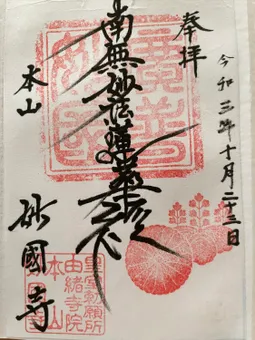 奉拝
令和三年十月二十三日
南無妙法蓮華経
本山
妙國寺
皇室勅願所
由緒寺院
本山